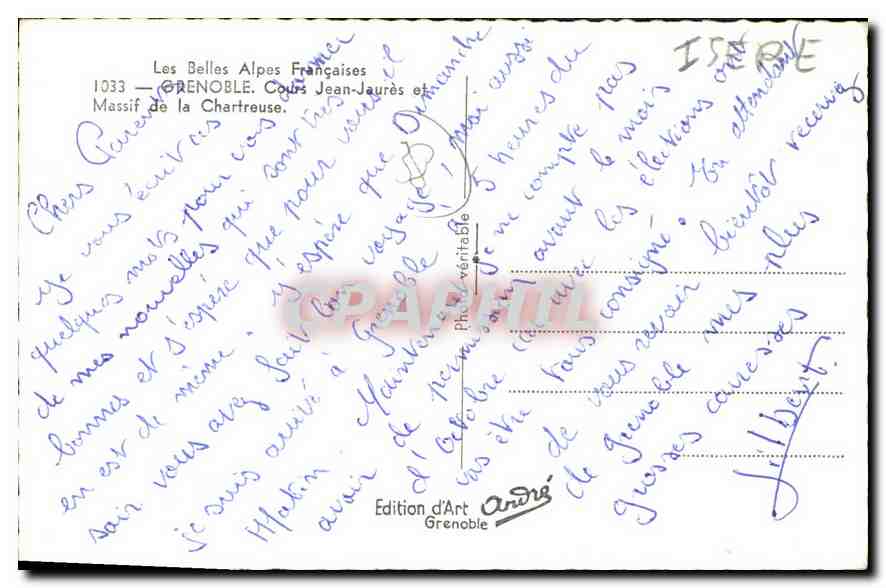 Les Belles Alpes Françaises
1033 — GRENOBLE. Cours Jean-Jaurès et
Massif de la Chartreuse.
ISERE
Chers Parents
Je vous écrit ces
quelques mots pour vous donner
de mes nouvelles qui sont très
bonnes et j'espère que pour vous il
en est de même. J'espère que Dimanche
soir vous avez fait bon voyage, moi aussi
je suis arrivé à Grenoble à 5 heures du
Matin. Maintenant je ne compte pas
avoir de permission avant le mois
d'Octobre car avec les élections on
vas être tous consigné. En attendant
de vous revoir bientôt recevez
de Grenoble mes plus
grosses caresses
Gilbert
Photo véritable
Edition d'Art André
Grenoble
CPAPHIL